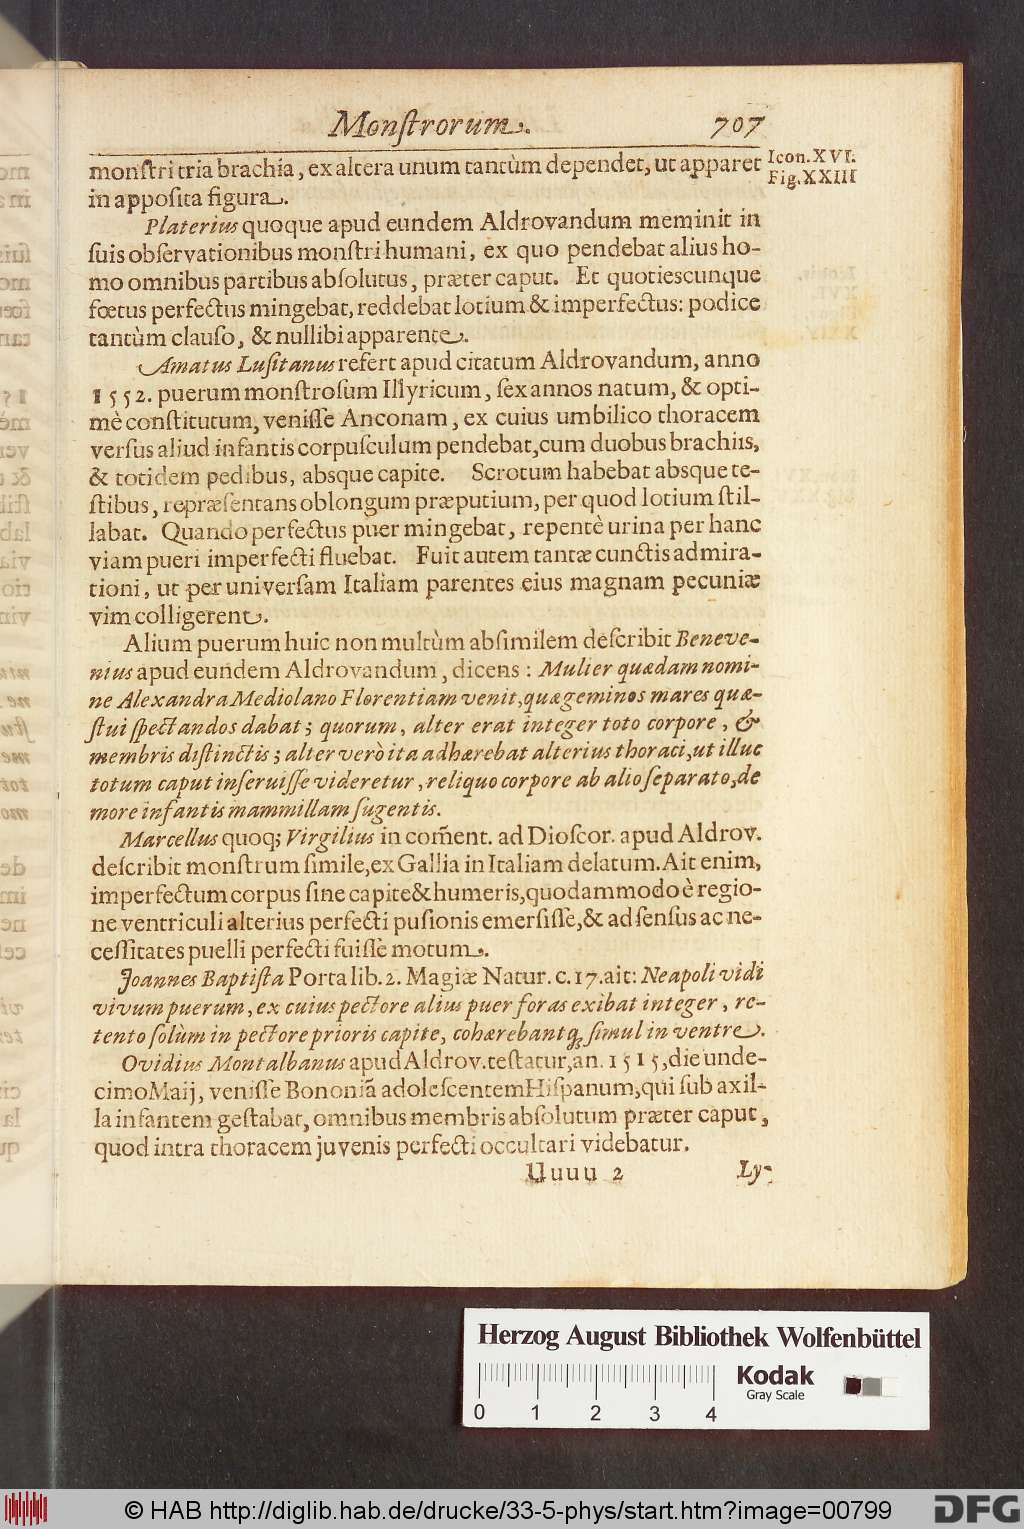 Monſtrorum. 707
monſtri tria brachia, ex altera unum tantùm dependet, ut apparet
in appoſita figura.
Icon. XVI.
Fig. XXIII
Platerius quoque apud eundem Aldrovandum meminit in
ſuis obſervationibus monſtri humani, ex quo pendebat alius ho-
mo omnibus partibus abſolutus, præter caput. Et quotieſcunque
fœtus perfectus mingebat, reddebat lotium & imperfectus: podice
tantùm clauſo, & nullibi apparente.
Amatus Luſitanus refert apud citatum Aldrovandum, anno
1552. puerum monſtroſum Illyricum, ſex annos natum, & opti-
mè conſtitutum, veniſſe Anconam, ex cuius umbilico thoracem
verſus aliud infantis corpuſculum pendebat, cum duobus brachiis,
& totidem pedibus, absque capite. Scrotum habebat absque te-
ſtibus, repræſentans oblongum præputium, per quod lotium ſtil-
labat. Quando perfectus puer mingebat, repentè urina per hanc
viam pueri imperfecti fluebat. Fuit autem tantæ cunctis admira-
tioni, ut per univerſam Italiam parentes eius magnam pecuniæ
vim colligerent.
Alium puerum huic non multùm abſimilem deſcribit Beneve-
nius apud eundem Aldrovandum, dicens: Mulier quædam nomi-
ne Alexandra Mediolano Florentiam venit, quæ geminos mares quæ-
ſtui ſpectandos dabat; quorum, alter erat integer toto corpore, &
membris diſtinctis; alter verò ita adhærebat alterius thoraci, ut illuc
totum caput inſeruiſſe videretur, reliquo corpore ab alio ſeparato, de
more infantis mammillam ſugentis.
Marcellus quoq; Virgilius in com̃ent. ad Dioſcor. apud Aldrov.
deſcribit monſtrum ſimile, ex Gallia in Italiam delatum. Ait enim,
imperfectum corpus ſine capite & humeris, quodammodo è regio-
ne ventriculi alterius perfecti puſionis emerſiſſe, & ad ſenſus ac ne-
ceſſitates puelli perfecti fuiſſe motum.
Joannes Baptiſta Porta lib. 2. Magiæ Natur. c. 17. ait: Neapoli vidi
vivum puerum, ex cuius pectore alius puer foras exibat integer, re-
tento ſolùm in pectore prioris capite, cohærebantq; ſimul in ventre.
Ovidius Montalbanus apud Aldrov. teſtatur, an. 1515, die unde-
cimo Maij, veniſſe Bononiã adoleſcentem Hiſpanum, qui ſub axil-
la infantem geſtabat, omnibus membris abſolutum præter caput,
quod intra thoracem juvenis perfecti occultari videbatur.
Uuuu 2 Ly-
Herzog August Bibliothek Wolfenbüttel
Kodak
Gray Scale
0 1 2 3 4
© HAB http://diglib.hab.de/drucke/33-5-phys/start.htm?image=00799
DFG